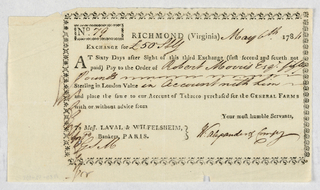 No. 79
RICHMOND (Virginia) May 6th 178
Exchange for £50 Stg
AT Sixty Days after Sight of this third Exchange (first second and fourth not
paid) Pay to the Order of Robert Morris Esqr fifty
Pounds
Sterling in London Value in Account with him
and place the same to our Account of Tobacco purchased for the GENERAL FARMS
with or without advice from
Your most humble Servants,
W. Alexander & Compy
To Mess. LAVAL & WILFELSHEIM,
Bankers, PARIS.